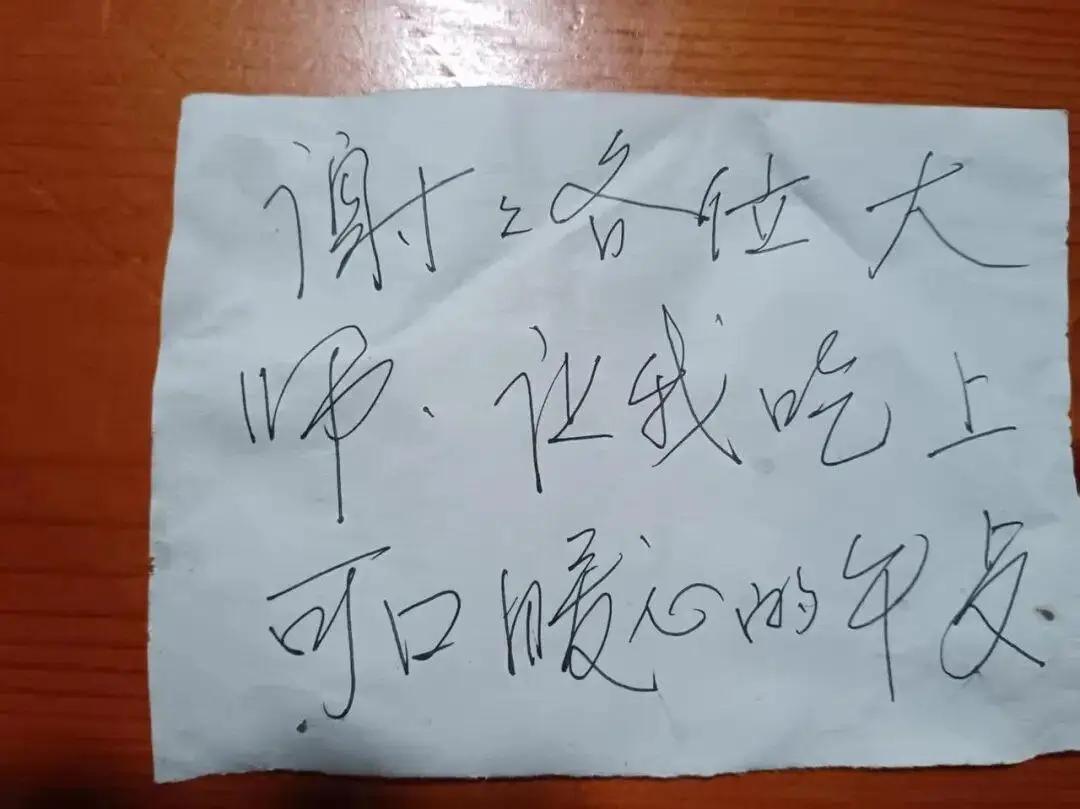 谢々各位大
师、让我吃上
可口暖心的